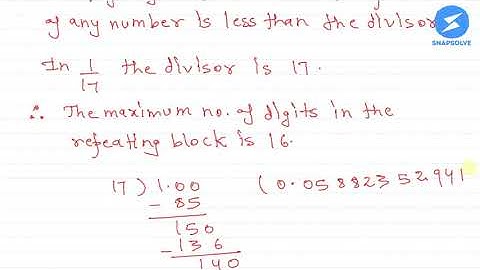 of any number is less than the divisor
SNAPSOLVE
In 1/17 the divisor is 17.
∴ The maximum no. of digits in the
repeating block is 16.
17 ) 1.00 ( 0.05882352941
- 85
150
- 136
140